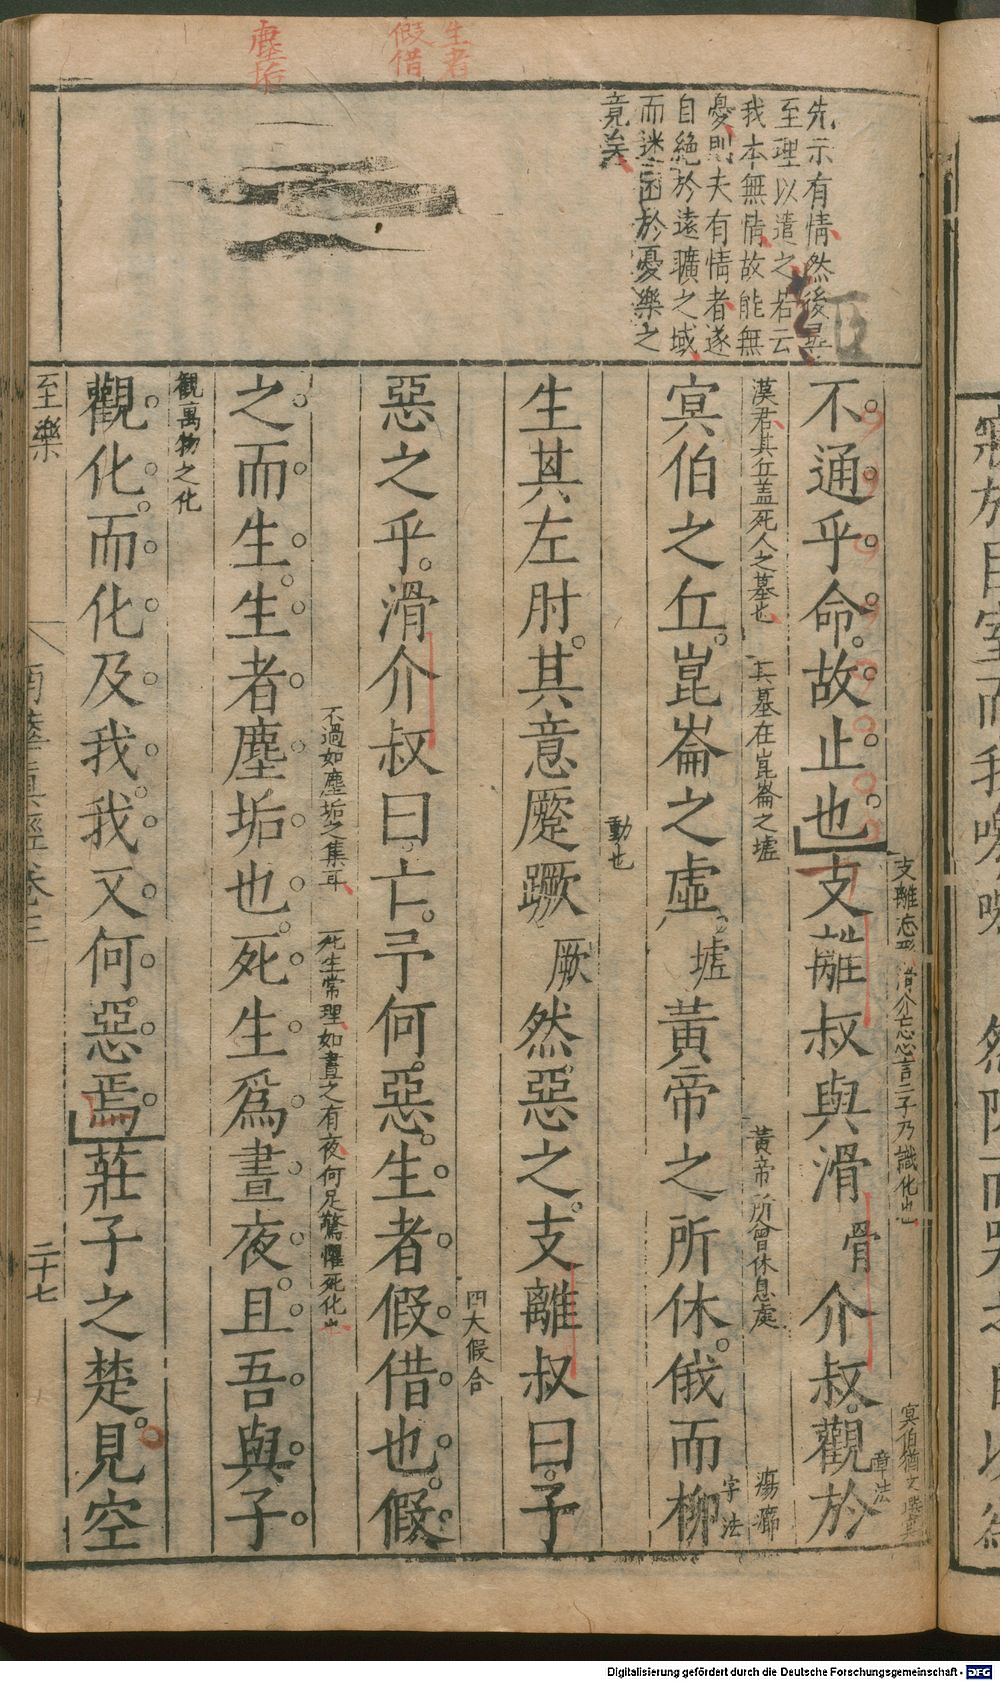 生者
假借
塵垢
先示有情然後尋
至理以遣之若云
我本無情故能無
憂則夫有情者遂
自絕於遠曠之域
而迷困於憂樂之
竟矣
支離忘形滑介忘心言二子乃識化也
不通乎命故止也支離叔與滑骨介叔觀於
章法
漠君其丘蓋死人之墓也
其墓在崑崙之墟
黃帝所曾休息處
瘍癤
冥伯之丘崑崙之虛墟黃帝之所休俄而柳
字法
動也
生其左肘其意蹷蹶厥然惡之支離叔曰予
四大假合
惡之乎滑介叔曰亡予何惡生者假借也假
不過如塵垢之集耳
死生常理如晝之有夜何足驚懼死化也
之而生生者塵垢也死生爲晝夜且吾與子
觀萬物之化
觀化而化及我我又何惡焉莊子之楚見空
至樂
南華真經卷三
二十七
Digitalisierung gefördert durch die Deutsche Forschungsgemeinschaft - DFG